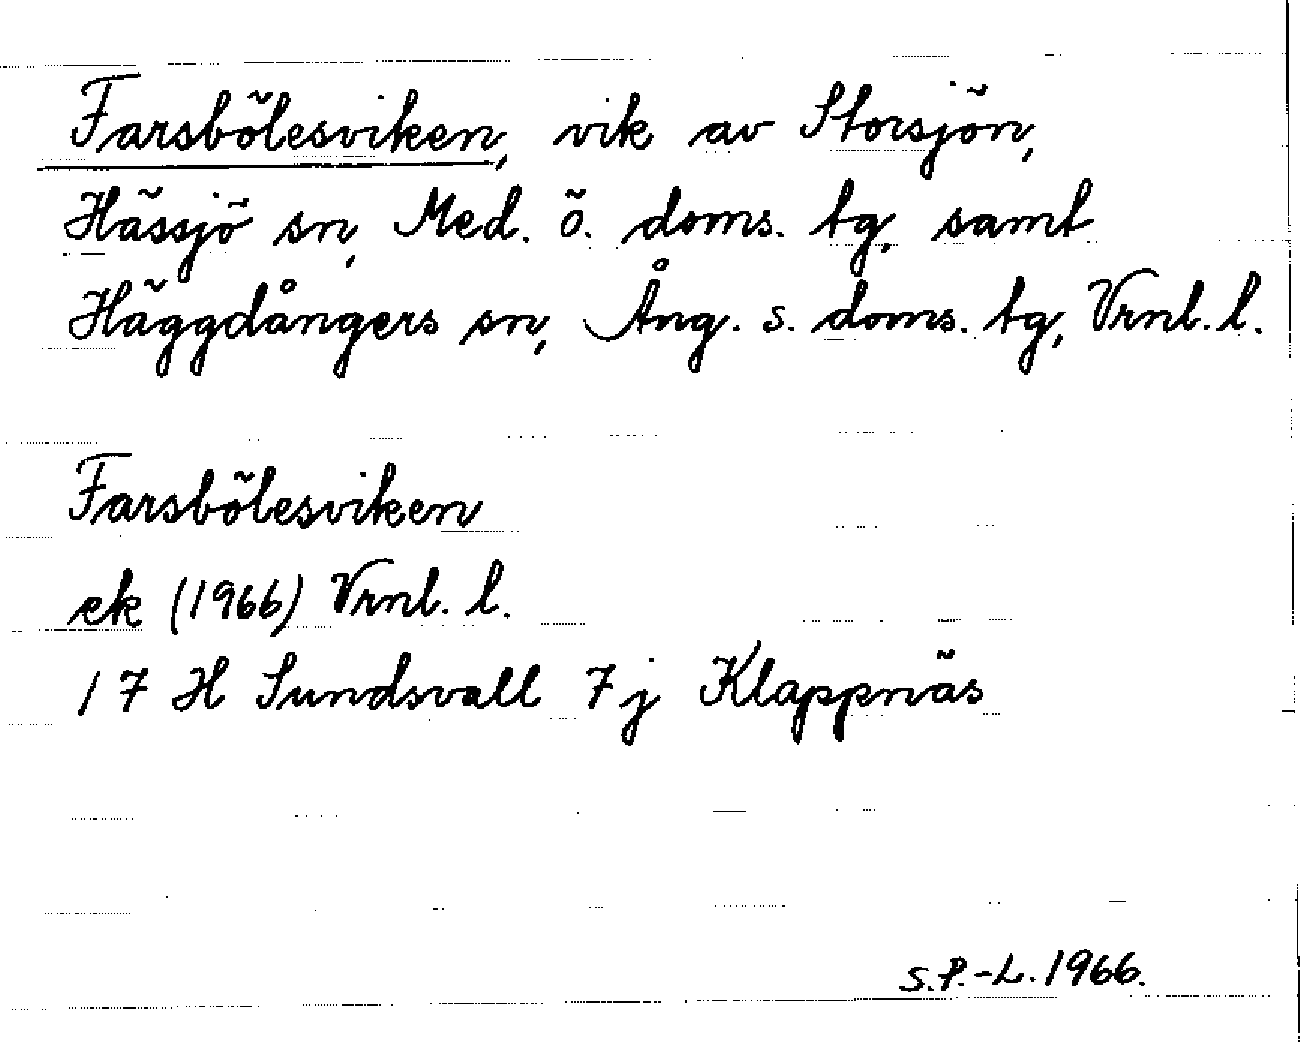 Farsbölesviken, vik av Storsjön,
Hässjö sn, Med. ö. doms. tg, samt
Häggdångers sn, Ång. s. doms. tg, Vrnl. l.
Farsbölesviken
ek (1966) Vrnl. l.
17 H Sundsvall 7j Klappnäs
S.P.-L. 1966.